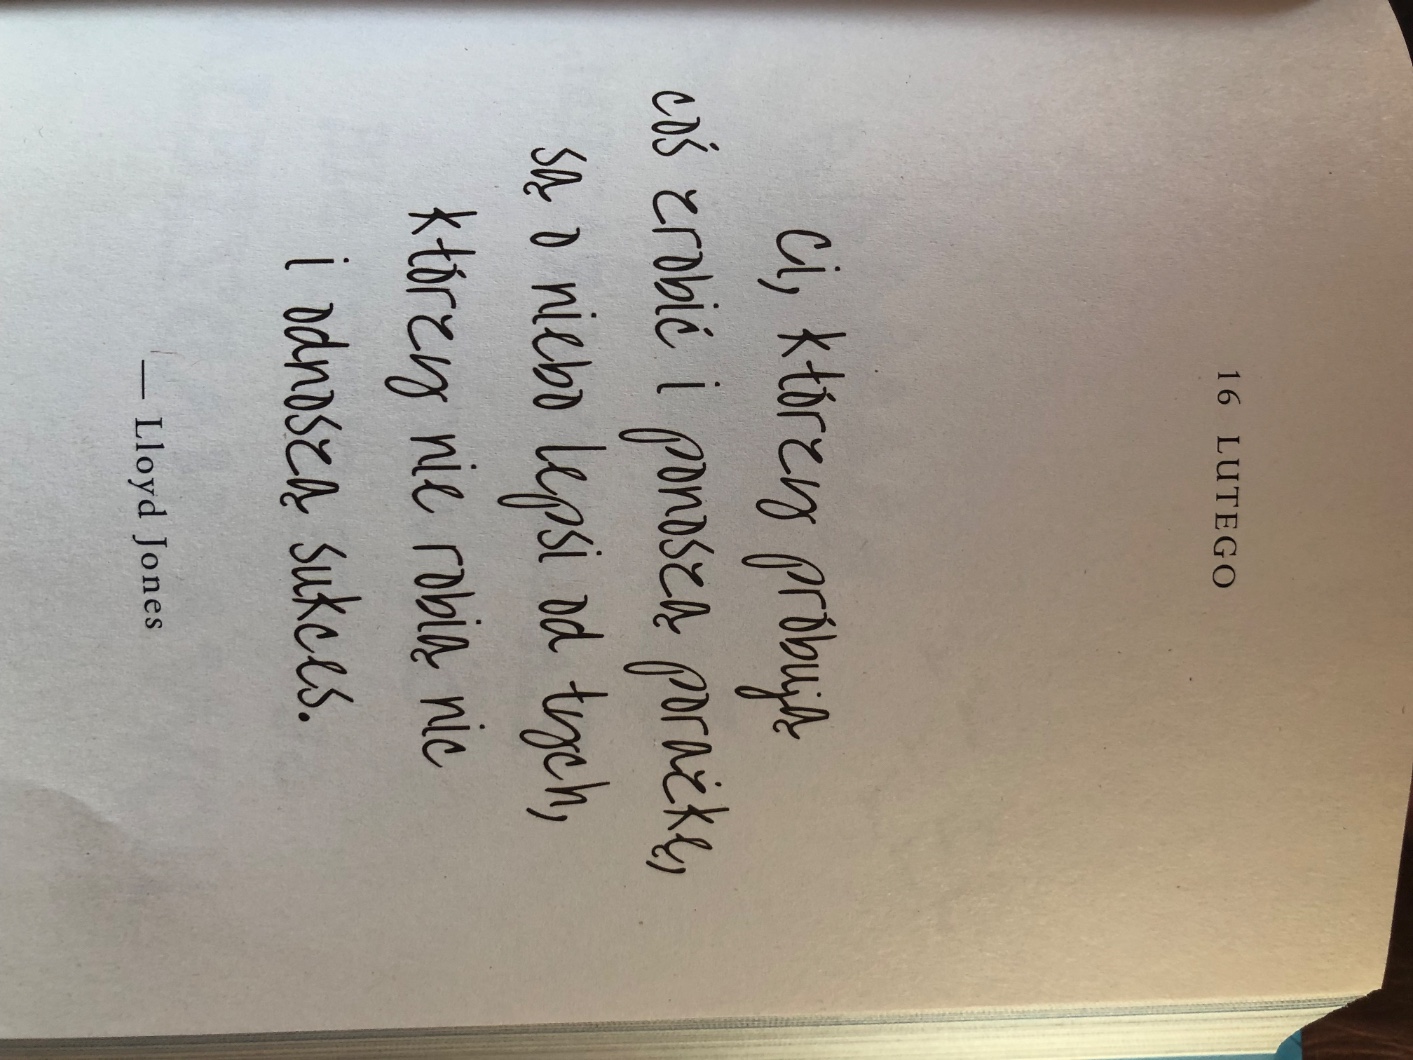 16 LUTEGO
Ci, którzy próbują
coś zrobić i ponoszą porażkę,
są o niebo lepsi od tych,
którzy nie robią nic
i odnoszą sukces.
— Lloyd Jones